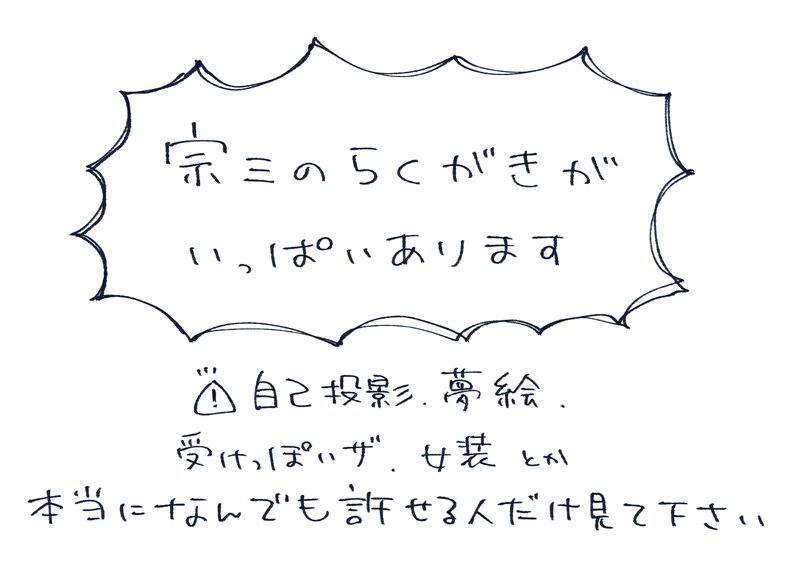 宗三のらくがきが
いっぱいあります
⚠ 自己投影.夢絵.
受けっぽいザ.女装とか
本当になんでも許せる人だけ見て下さい